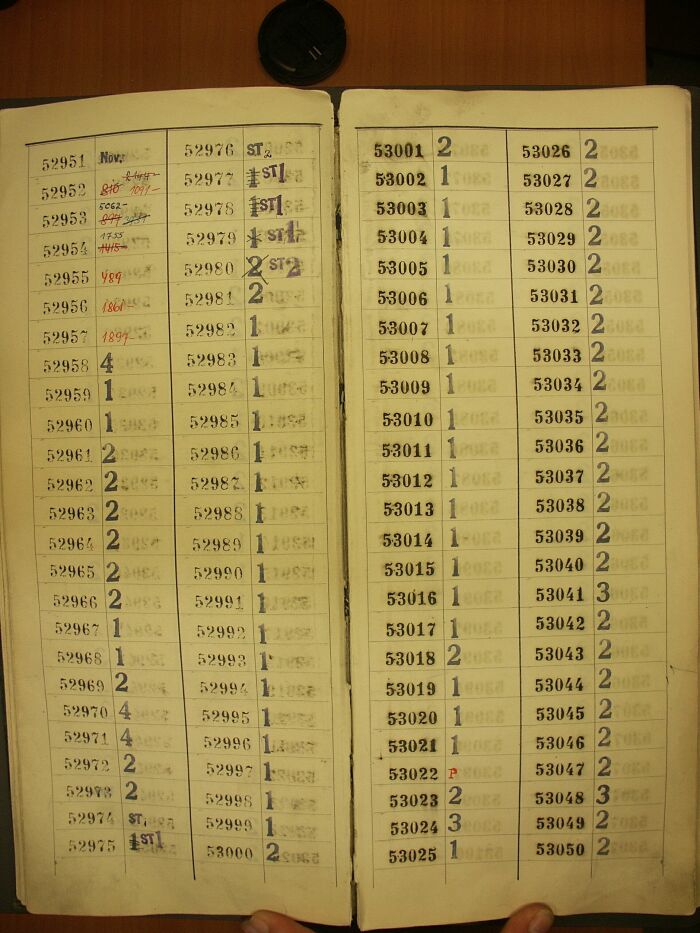 52951 Nov.
52952 810 1091-
52953 5062-
52954 1755 1415-
52955 489
52956 1861-
52957 1899-
52958 4
52959 1
52960 1
52961 2
52962 2
52963 2
52964 2
52965 2
52966 2
52967 1
52968 1
52969 2
52970 4
52971 4
52972 2
52973 2
52974 ST1
52975 1 ST1
52976 ST2
52977 1 ST1
52978 1 ST1
52979 1 ST1
52980 2 ST2
52981 2
52982 1
52983 1
52984 1
52985 1
52986 1
52987 1
52988 1
52989 1
52990 1
52991 1
52992 1
52993 1
52994 1
52995 1
52996 1
52997 1
52998 1
52999 1
53000 2
53001 2
53002 1
53003 1
53004 1
53005 1
53006 1
53007 1
53008 1
53009 1
53010 1
53011 1
53012 1
53013 1
53014 1
53015 1
53016 1
53017 1
53018 2
53019 1
53020 1
53021 1
53022 P
53023 2
53024 3
53025 1
53026 2
53027 2
53028 2
53029 2
53030 2
53031 2
53032 2
53033 2
53034 2
53035 2
53036 2
53037 2
53038 2
53039 2
53040 2
53041 3
53042 2
53043 2
53044 2
53045 2
53046 2
53047 2
53048 3
53049 2
53050 2